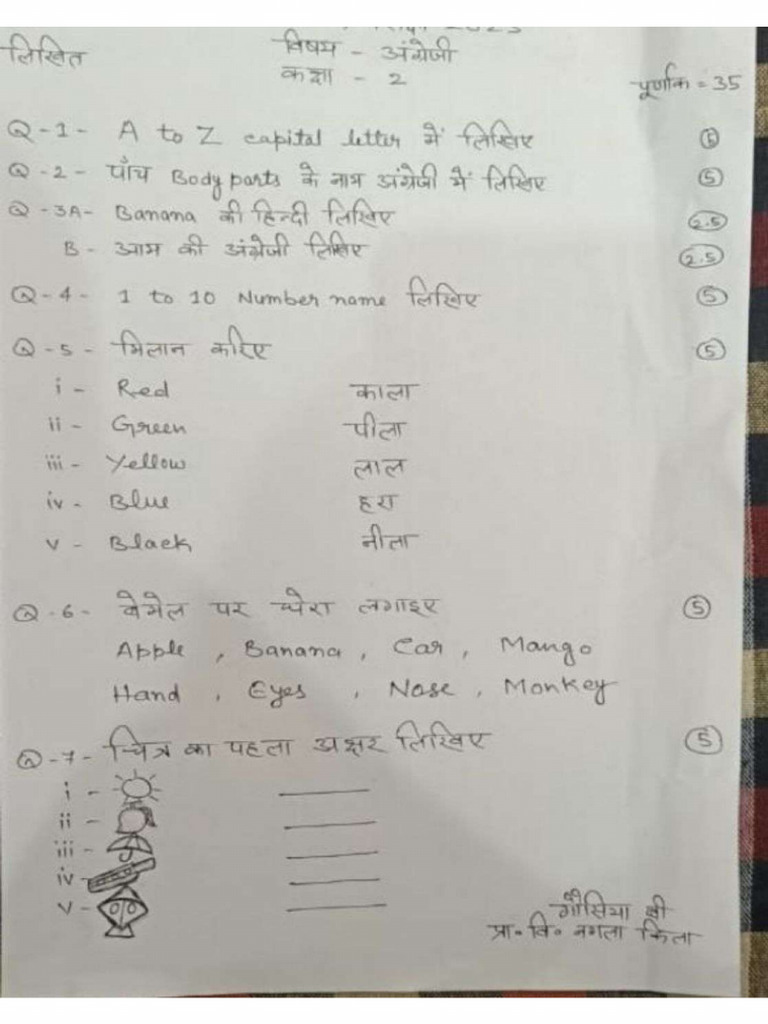 2023
लिखित
विषय - अंग्रेजी
कक्षा - 2
पूर्णांक = 35
Q-1- A to Z capital letter में लिखिए (5)
Q-2- पाँच Body parts के नाम अंग्रेजी में लिखिए (5)
Q-3A- Banana की हिन्दी लिखिए (2.5)
B- आम की अंग्रेजी लिखिए (2.5)
Q-4- 1 to 10 Number name लिखिए (5)
Q-5- मिलान करिए (5)
i- Red काला
ii- Green पीला
iii- Yellow लाल
iv- Blue हरा
v- Black नीला
Q-6- बेमेल पर घेरा लगाइए (5)
Apple, Banana, Car, Mango
Hand, Eyes, Nose, Monkey
Q-7- चित्र का पहला अक्षर लिखिए (5)
i -
ii -
iii -
iv -
v -
गौसिया बी
प्रा॰ वि॰ नगला किला